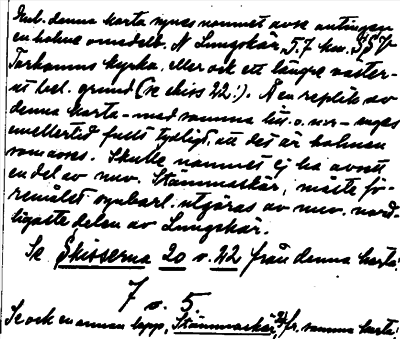 Enl. denna karta synes namnet avse antingen
en holme omedelb. N Lungskär, 5.7 km. SSV
Torhamns kyrka, eller ock ett längre väster-
ut bel. grund (se skiss 22:). Å en replik av
denna karta – med samma – anges
emellertid fullt tydligt, att det är holmen
som avses. Skulle namnet ej ha avsett
en del av nuv. Stämmaskär, måste fö-
remålet synbarl. utgöras av nuv. nord-
ligaste delen av Lungskär.
Se Skisserna 20 o. 22 från denna karta!
7 o. 5
Se ock en annan lapp, Stämmaskär, fr. samma karta!